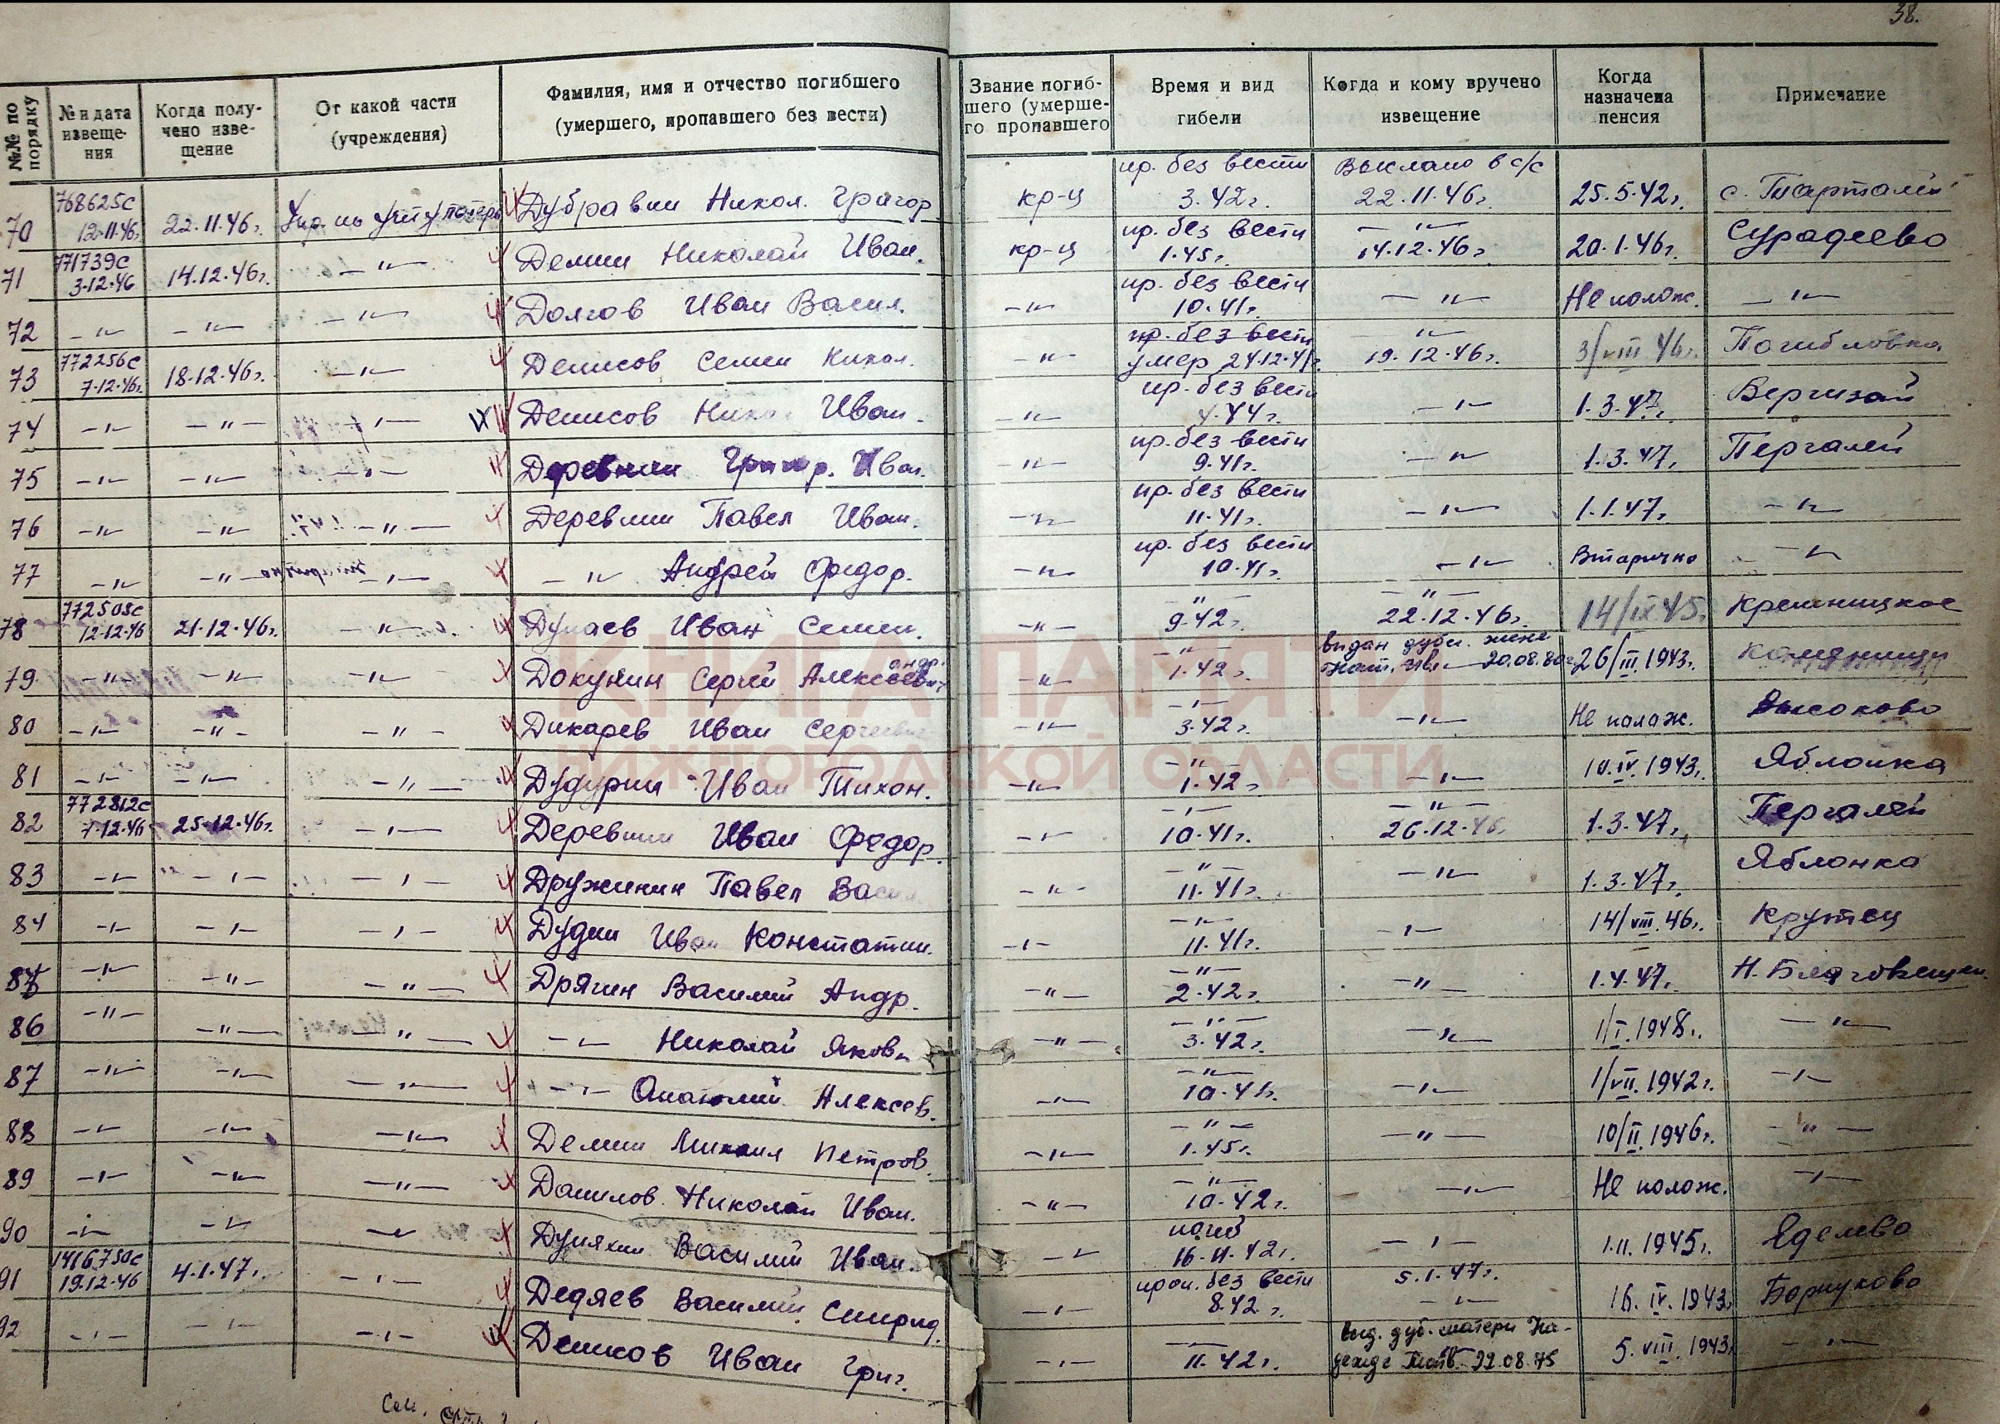 38.
№№ по порядку
№ и дата извеще-ния
Когда полу-чено изве-щение
От какой части (учреждения)
Фамилия, имя и отчество погибшего (умершего, пропавшего без вести)
Звание погиб-шего (умерше-го пропавшего
Время и вид гибели
Когда и кому вручено извещение
Когда назначена пенсия
Примечание
70 768625с 12-11-46г. 22.11.46г. Упр. по учету потерь Дубравин Никол. Григор. кр-ц пр. без вести 3.42г. Выслано в с/с 22.11.46г. 25.5.42г. с. Тарталей
71 771739с 3-12-46 14.12.46г. —〃— Демин Николай Иван. кр-ц пр. без вести 1.45г. —〃— 14.12.46г. 20.1.46г. Сурадеево
72 —〃— —〃— —〃— Долгов Иван Васил. —〃— пр. без вести 10.41г. —〃— Не полож. —〃—
73 772256с 7-12-46г. 18.12.46г. —〃— Денисов Семен Никол. —〃— пр. без вести умер 24.12.41г. —〃— 19.12.46г. 3/VIII 46г. Погибловка
74 —〃— —〃— —〃— Денисов Никол. Иван. —〃— пр. без вести 4.44г. —〃— 1.3.47г. Вергизай
75 —〃— —〃— —〃— Деревнин Григор. Иван. —〃— пр. без вести 9.41г. —〃— 1.3.47г. Пергалей
76 —〃— —〃— —〃— Деревнин Павел Иван. —〃— пр. без вести 11.41г. —〃— 1.1.47г. —〃—
77 —〃— —〃— —〃— —〃— Андрей Федор. —〃— пр. без вести 10.41г. —〃— Втарично —〃—
78 772505с 12-12-46 21.12.46г. —〃— Дунаев Иван Семен. —〃— —〃— 9.42г. —〃— 22.12.46г. 14/IX 45г. Кременицкое
79 —〃— —〃— —〃— Докунин Сергей Алексеевич андр. —〃— —〃— 1.42г. выдан дубл. жене 20.08.80г. 26/III.1943г.
80 —〃— —〃— —〃— Дикарев Иван Сергеевич —〃— —〃— 3.42г. —〃— Не полож. Высоково
81 —〃— —〃— —〃— Дудурин Иван Тихон. —〃— —〃— 1.42г. —〃— 10.IV.1943г. Яблонка
82 772812с 7-12-46 25.12.46г. —〃— Деревнин Иван Федор. —〃— —〃— 10.41г. —〃— 26.12.46г. 1.3.47г. Пергалей
83 —〃— —〃— —〃— Дружинин Павел Васил. —〃— —〃— 11.41г. —〃— 1.3.47г. Яблонка
84 —〃— —〃— —〃— Дудин Иван Констатин. —〃— —〃— 11.41г. —〃— 14/VIII.46г. Крутец
85 —〃— —〃— —〃— Дрягин Василий Андр. —〃— —〃— 2.42г. —〃— 1.4.47г. Н. Благовещен.
86 —〃— —〃— —〃— —〃— Николай Яков. —〃— —〃— 3.42г. —〃— 1/I.1948г. —〃—
87 —〃— —〃— —〃— —〃— Анатолий Алексев. —〃— —〃— 10.41г. —〃— 1/VII.1942г. —〃—
88 —〃— —〃— —〃— Демин Михаил Петров. —〃— —〃— 1.45г. —〃— 10/II.1946г. —〃—
89 —〃— —〃— —〃— Данилов Николай Иван. —〃— —〃— 10.42г. —〃— Не полож. —〃—
90 —〃— —〃— —〃— Дуняхин Василий Иван. —〃— погиб 16.11.42г. —〃— 1.11.1945г. Яделево
91 1416750с 19.12.46 4.1.47г. —〃— Дедяев Василий Спирид. —〃— проп. без вести 8.42г. 5.1.47г. —〃— 16.IV.1943г. Борнуково
92 —〃— —〃— —〃— Демков Иван Григ. —〃— —〃— 11.42г. выд. дуб. матери На-дежде 22.08.75 5.VIII.1943г. —〃—
КНИГА ПАМЯТИ
НИЖЕГОРОДСКОЙ ОБЛАСТИ